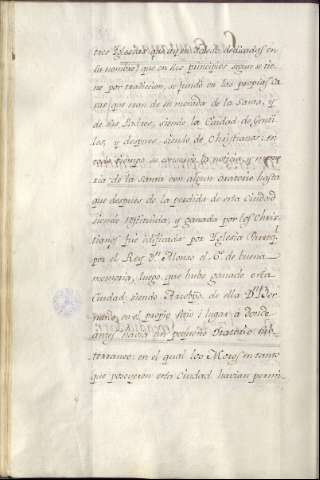 tres Yglesias que ay en Toledo dedicadas en
su nombre) que en sus principios segun se tie-
ne por tradicion, se fundó en las propias ca-
sas que eran de su morada de la Santa, y
de sus Padres, siendo la Ciudad de Genti-
les, y despues siendo de Christianos: en
todo tiempo se conservó la noticia y memo-
ria de la Santa con algun oratorio hasta
que despues de la perdida de esta Ciudad
siendo restituida, y ganada por los Chris-
tianos fue edificada por Yglesia Parroq.
por el Rey Dn. Alonso el 6º de buena
memoria, luego que hubo ganado esta
Ciudad siendo Arzobispo de ella Dn. Ber-
nardo, en el propio sitio i lugar a donde
antes havia un pequeño Oratorio sub-
terraneo: en el qual los Moros en tanto
que poseyeron esta Ciudad havian permi-